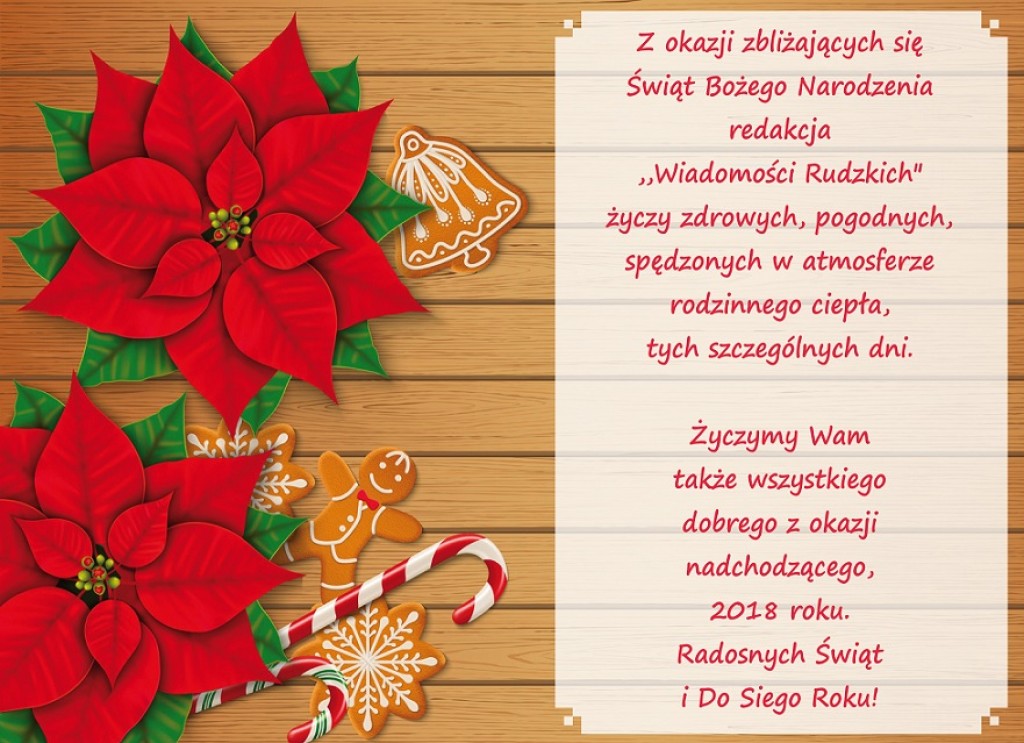 Z okazji zbliżających się
Świąt Bożego Narodzenia
redakcja
,,Wiadomości Rudzkich"
życzy zdrowych, pogodnych,
spędzonych w atmosferze
rodzinnego ciepła,
tych szczególnych dni.
Życzymy Wam
także wszystkiego
dobrego z okazji
nadchodzącego,
2018 roku.
Radosnych Świąt
i Do Siego Roku!